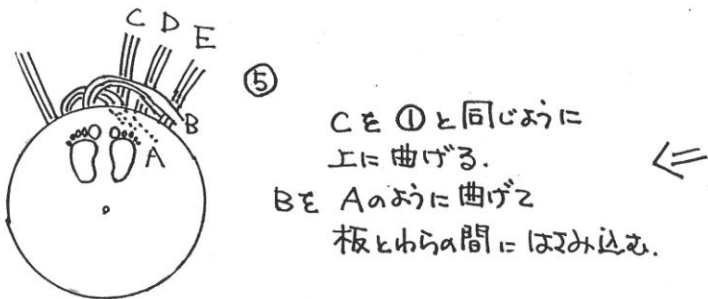 C D E
B
A
⑤
Cを①と同じように
上に曲げる.
Bを Aのように曲げて
板とわらの間にはさみ込む.